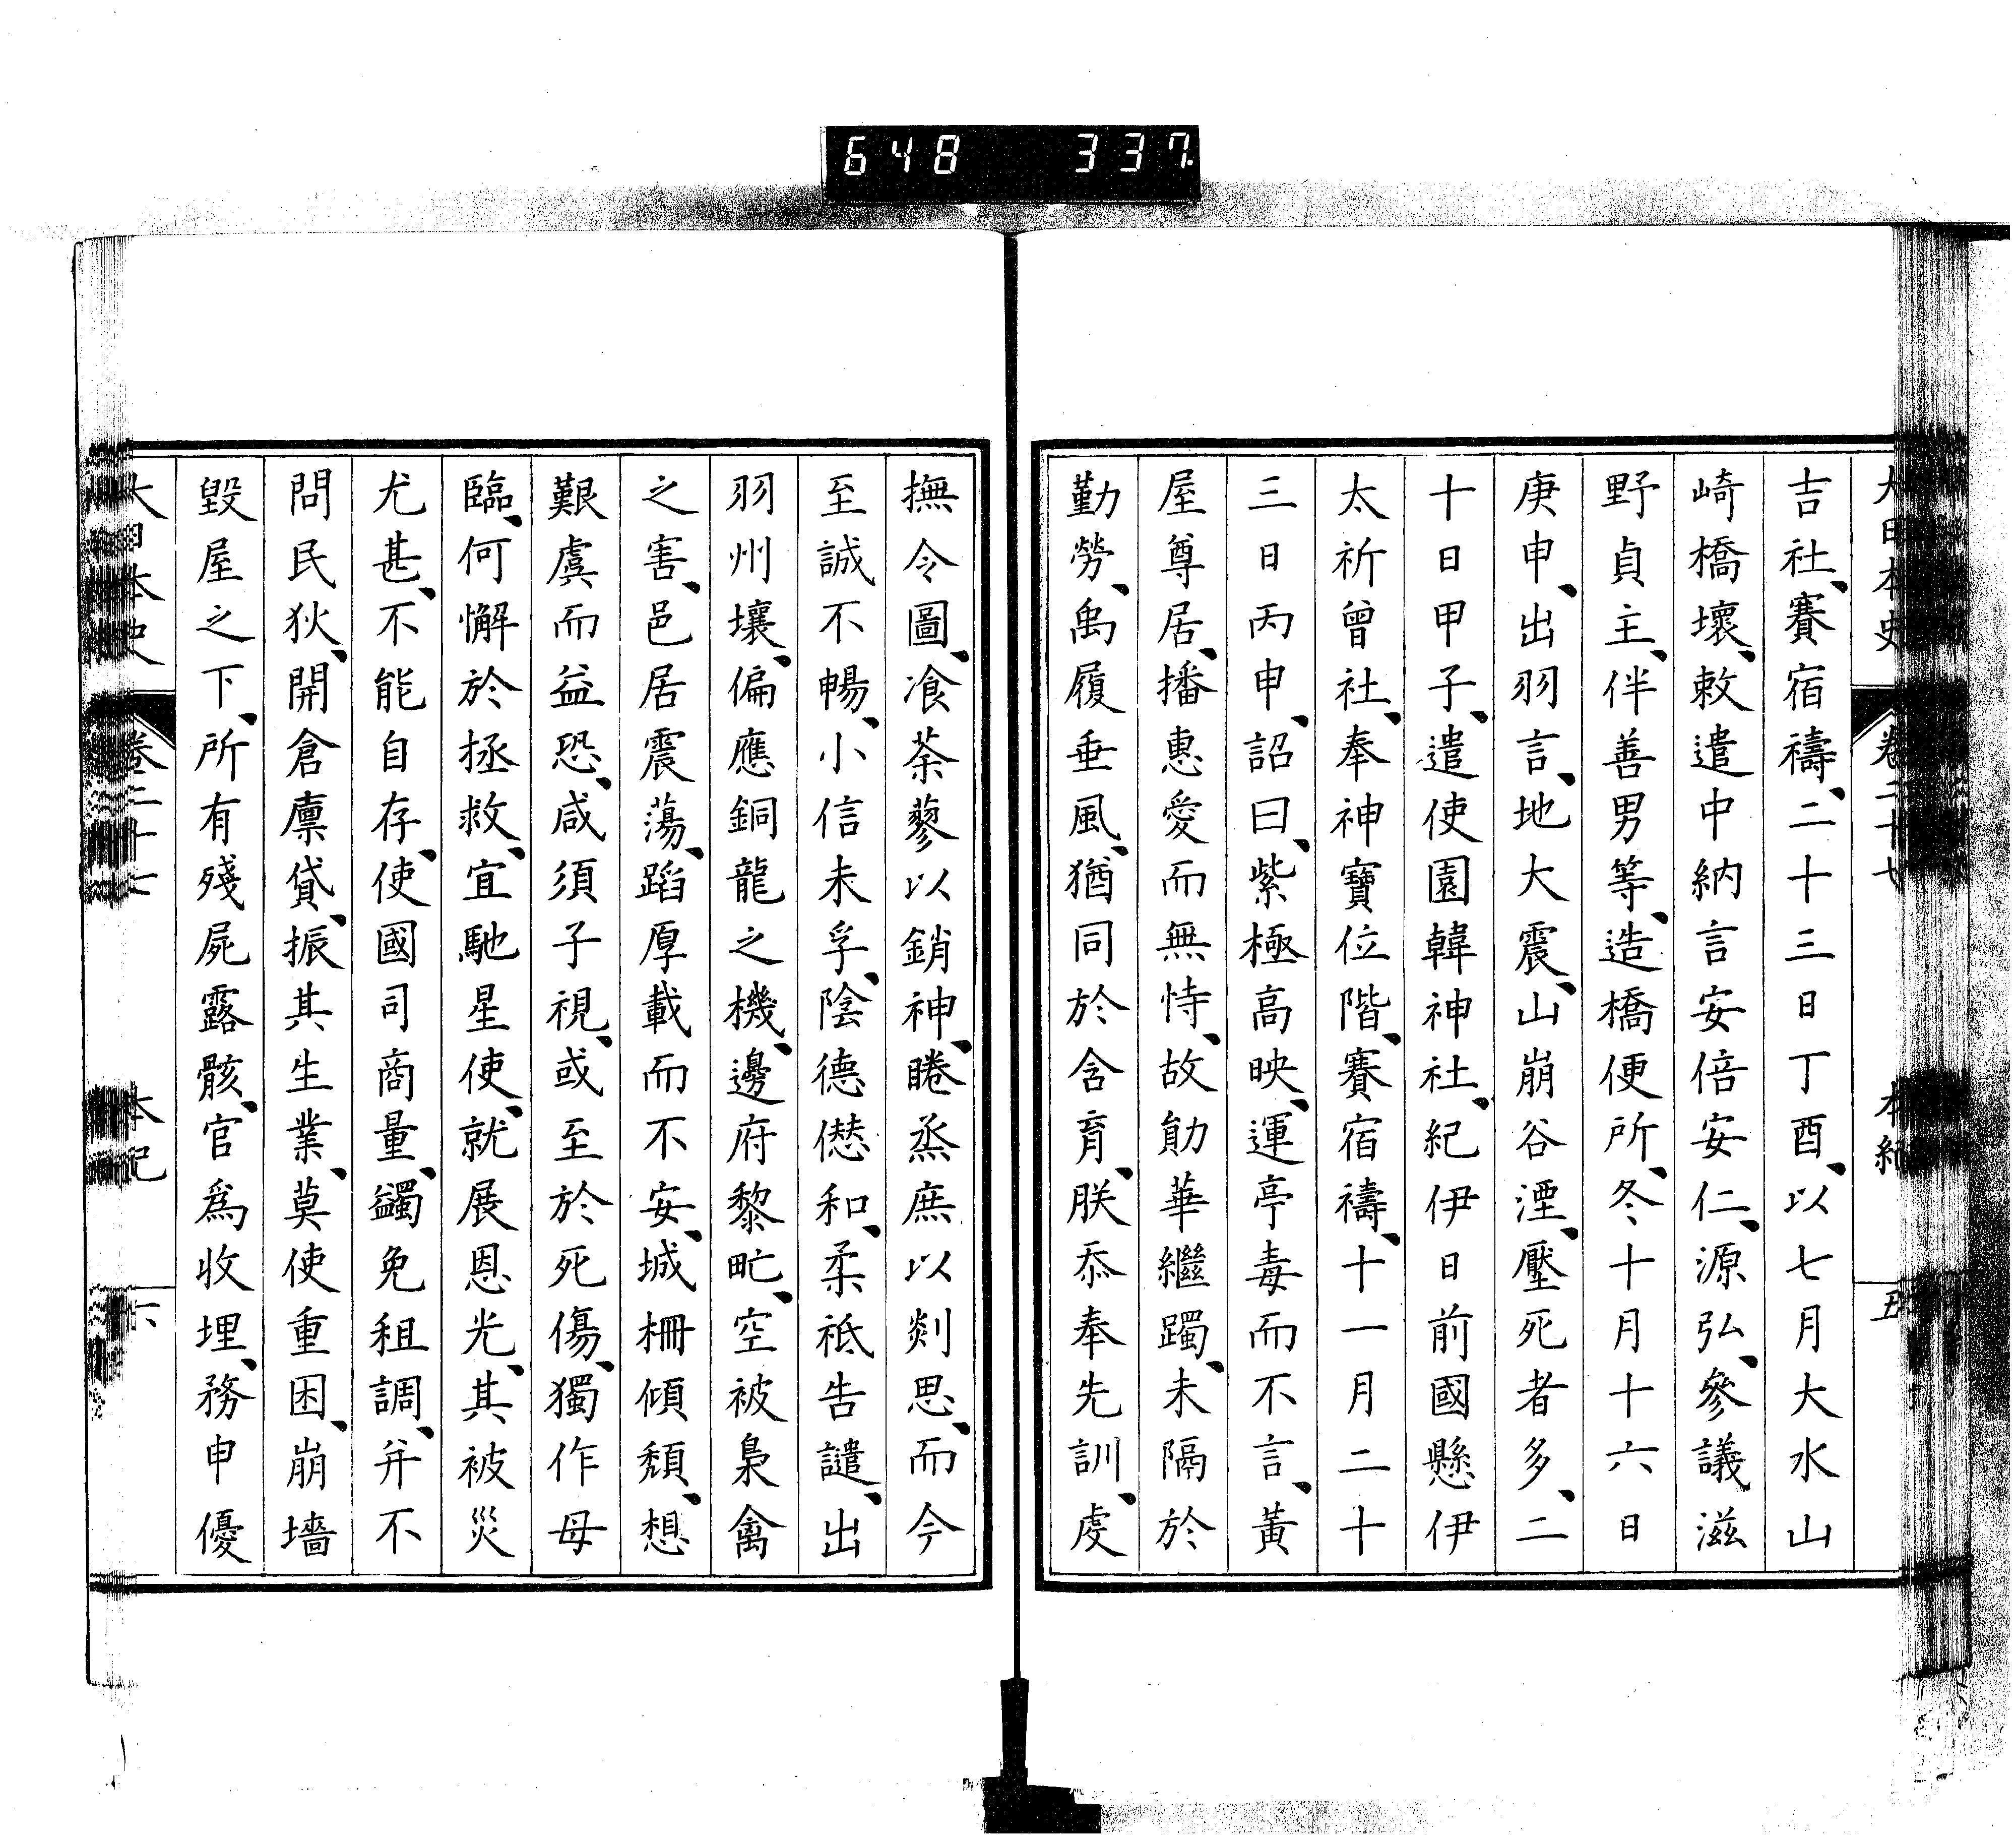 648 337
大日本史 卷二十七 本紀 五
吉社、賽宿禱、二十三日丁酉、以七月大水山
崎橋壞、敕遣中納言安倍安仁、源弘、參議滋
野貞主、伴善男等、造橋便所、冬十月十六日
庚申、出羽言、地大震、山崩谷湮、壓死者多、二
十日甲子、遣使園韓神社、紀伊日前國懸伊
太祈曾社、奉神寶位階、賽宿禱、十一月二十
三日丙申、詔曰、紫極高映、運亭毒而不言、黃
屋尊居、播惠愛而無恃、故勛華繼躅、未隔於
勤勞、禹履垂風、猶同於含育、朕忝奉先訓、虔
撫令圖、飡荼蓼以銷神、睠烝庶以剡思、而今
至誠不暢、小信未孚、陰德僁和、柔祇告譴、出
羽州壤、偏應銅龍之機、邊府黎甿、空被梟禽
之害、邑居震蕩、蹈厚載而不安、城柵傾頹、想
艱虞而益恐、咸須子視、或至於死傷、獨作母
臨、何懈於拯救、宜馳星使、就展恩光、其被災
尤甚、不能自存、使國司商量、蠲免租調、并不
問民狄、開倉廩貸、振其生業、莫使重困、崩墻
毀屋之下、所有殘屍露骸、官爲收埋、務申優
大日本史 卷二十七 本紀 六